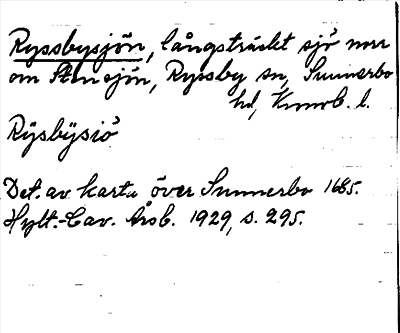 Ryssbysjön, långsträckt sjö nrr
om Stensjön, Ryssby sn, Sunnerbo
hd, Kronob. l.
Rÿsbÿsiö
Det. av karta över Sunnerbo 1685.
Hylt.-Cav. Årsb. 1929, s. 295.